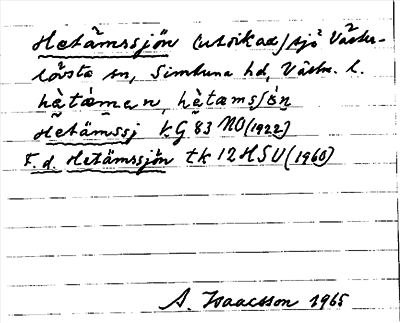 Hetämssjön (utdikad) sjö Väster-
lövsta sn, Simtuna hd, Västm. l.
hètámen, hètamsʃön
Hetämssj kG 83 NO (1922)
F.d. Hetämssjön tk 12H SV (1960)
A. Isaacsson 1965